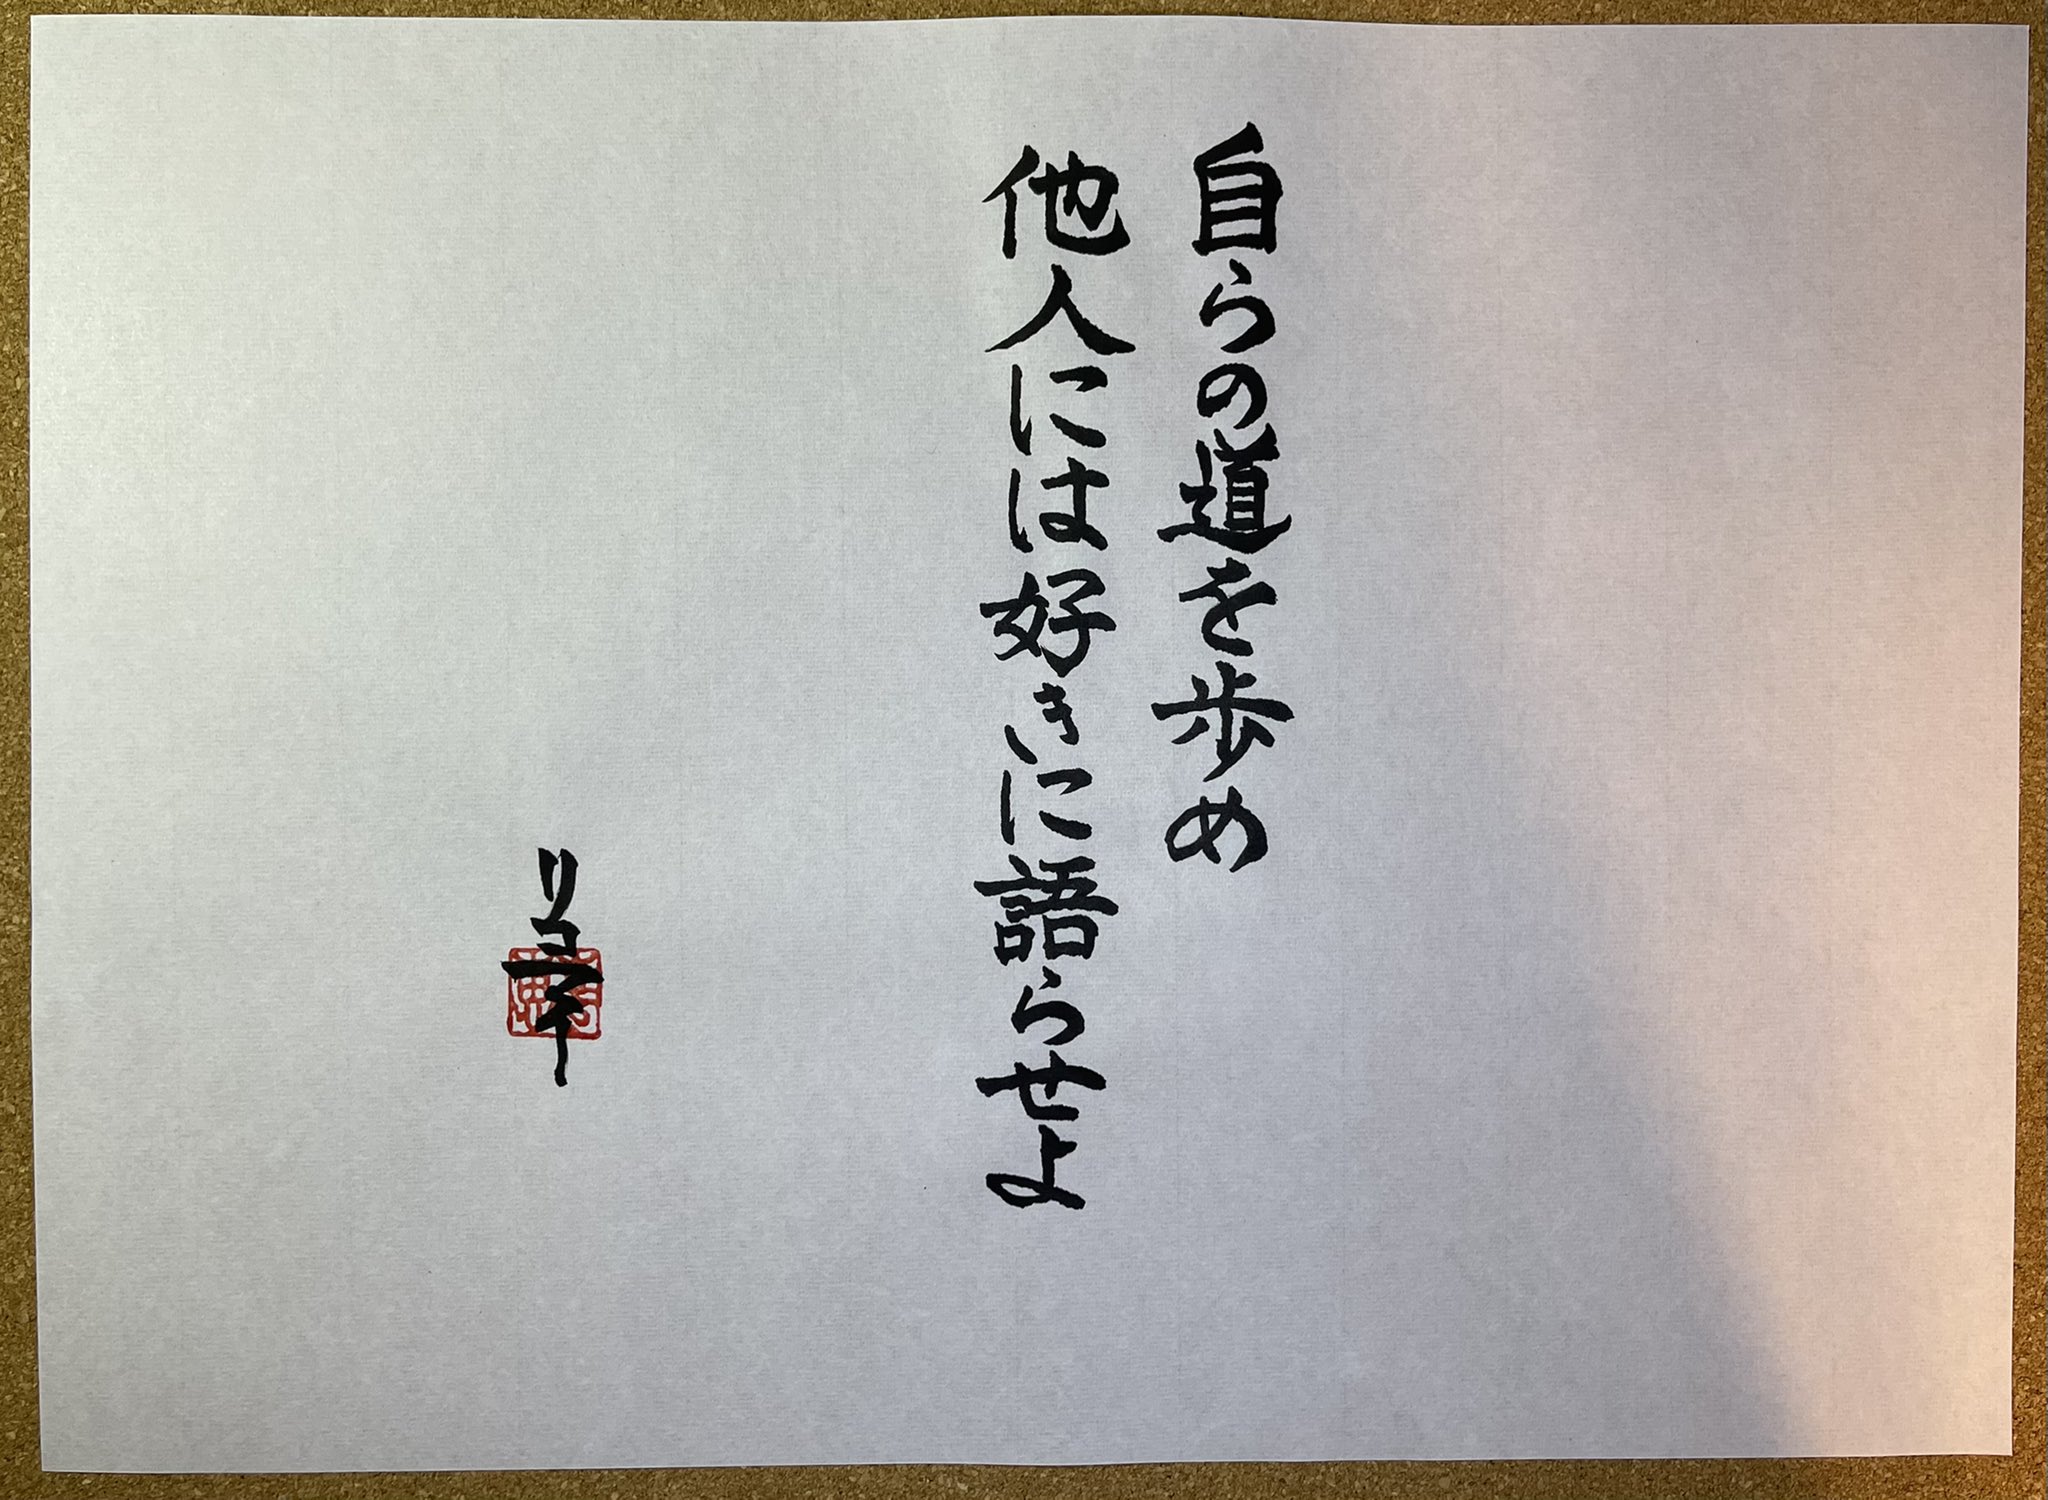 自らの道を歩め
他人には好きに語らせよ